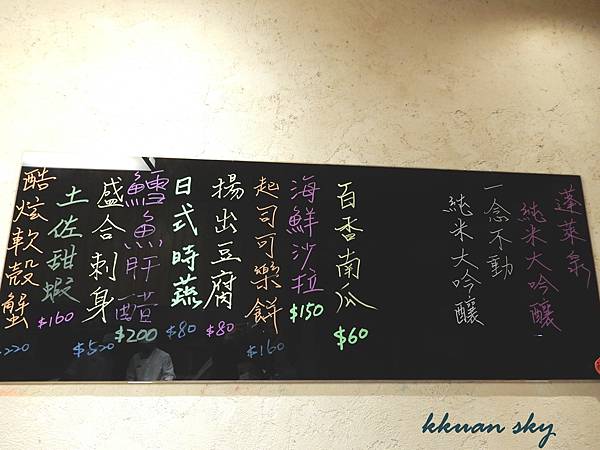 蓬萊泉
純米大吟釀
一念不動
純米大吟釀
百香南瓜
$60
海鮮沙拉
$150
起司可樂餅
$160
揚出豆腐
$80
日式時蔬
$80
鱈魚肝醋
$200
盛合刺身
$520
土佐甜蝦
$160
酷炫軟殼蟹
220
kkuan sky